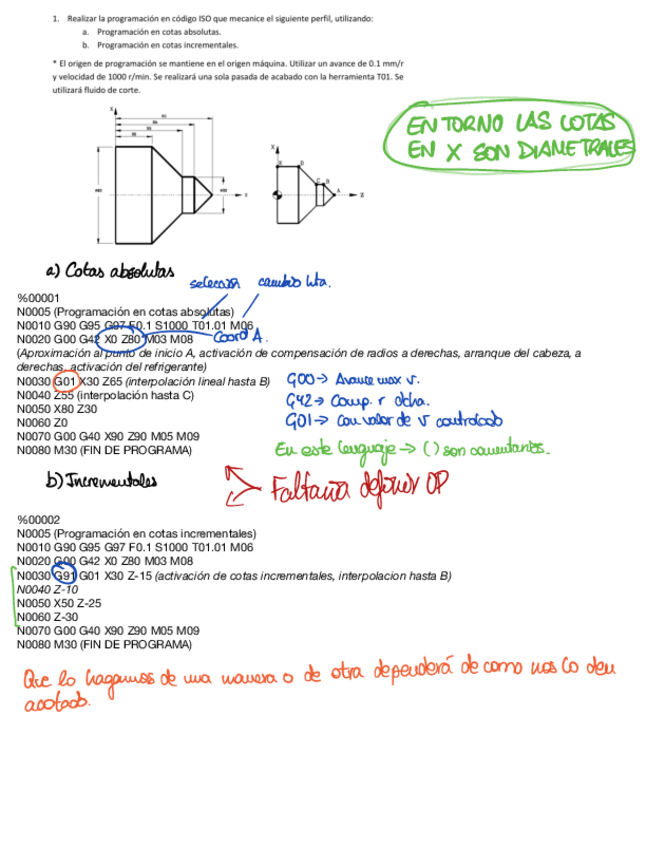 1. Realizar la programación en código ISO que mecanice el siguiente perfil, utilizando:
a. Programación en cotas absolutas.
b. Programación en cotas incrementales.
* El origen de programación se mantiene en el origen máquina. Utilizar un avance de 0.1 mm/r
y velocidad de 1000 r/min. Se realizará una sola pasada de acabado con la herramienta T01. Se
utilizará fluido de corte.
EN TORNO LAS COTAS
EN X SON DIAMETRALES
X
Z
X
D
C
B
A
Z
a) Cotas absolutas
selección cambio hta.
%00001
N0005 (Programación en cotas absolutas)
N0010 G90 G95 G97 F0.1 S1000 T01.01 M06
N0020 G00 G42 X0 Z80 M03 M08
Coord A.
(Aproximación al punto de inicio A, activación de compensación de radios a derechas, arranque del cabeza, a
derechas, activación del refrigerante)
N0030 G01 X30 Z65 (interpolación lineal hasta B)
G00→ Avance max v.
N0040 Z55 (interpolación hasta C)
G42→ Comp. r dcha.
N0050 X80 Z30
G01→ Con valor de v controlado
N0060 Z0
N0070 G00 G40 X90 Z90 M05 M09
En este lenguaje → ( ) son comentarios.
N0080 M30 (FIN DE PROGRAMA)
b) Incrementales
Faltaría definir OP
%00002
N0005 (Programación en cotas incrementales)
N0010 G90 G95 G97 F0.1 S1000 T01.01 M06
N0020 G00 G42 X0 Z80 M03 M08
N0030 G91 G01 X30 Z-15 (activación de cotas incrementales, interpolacion hasta B)
N0040 Z-10
N0050 X50 Z-25
N0060 Z-30
N0070 G00 G40 X90 Z90 M05 M09
N0080 M30 (FIN DE PROGRAMA)
Que lo hagamos de una manera o de otra dependerá de como nos lo den
acotado.